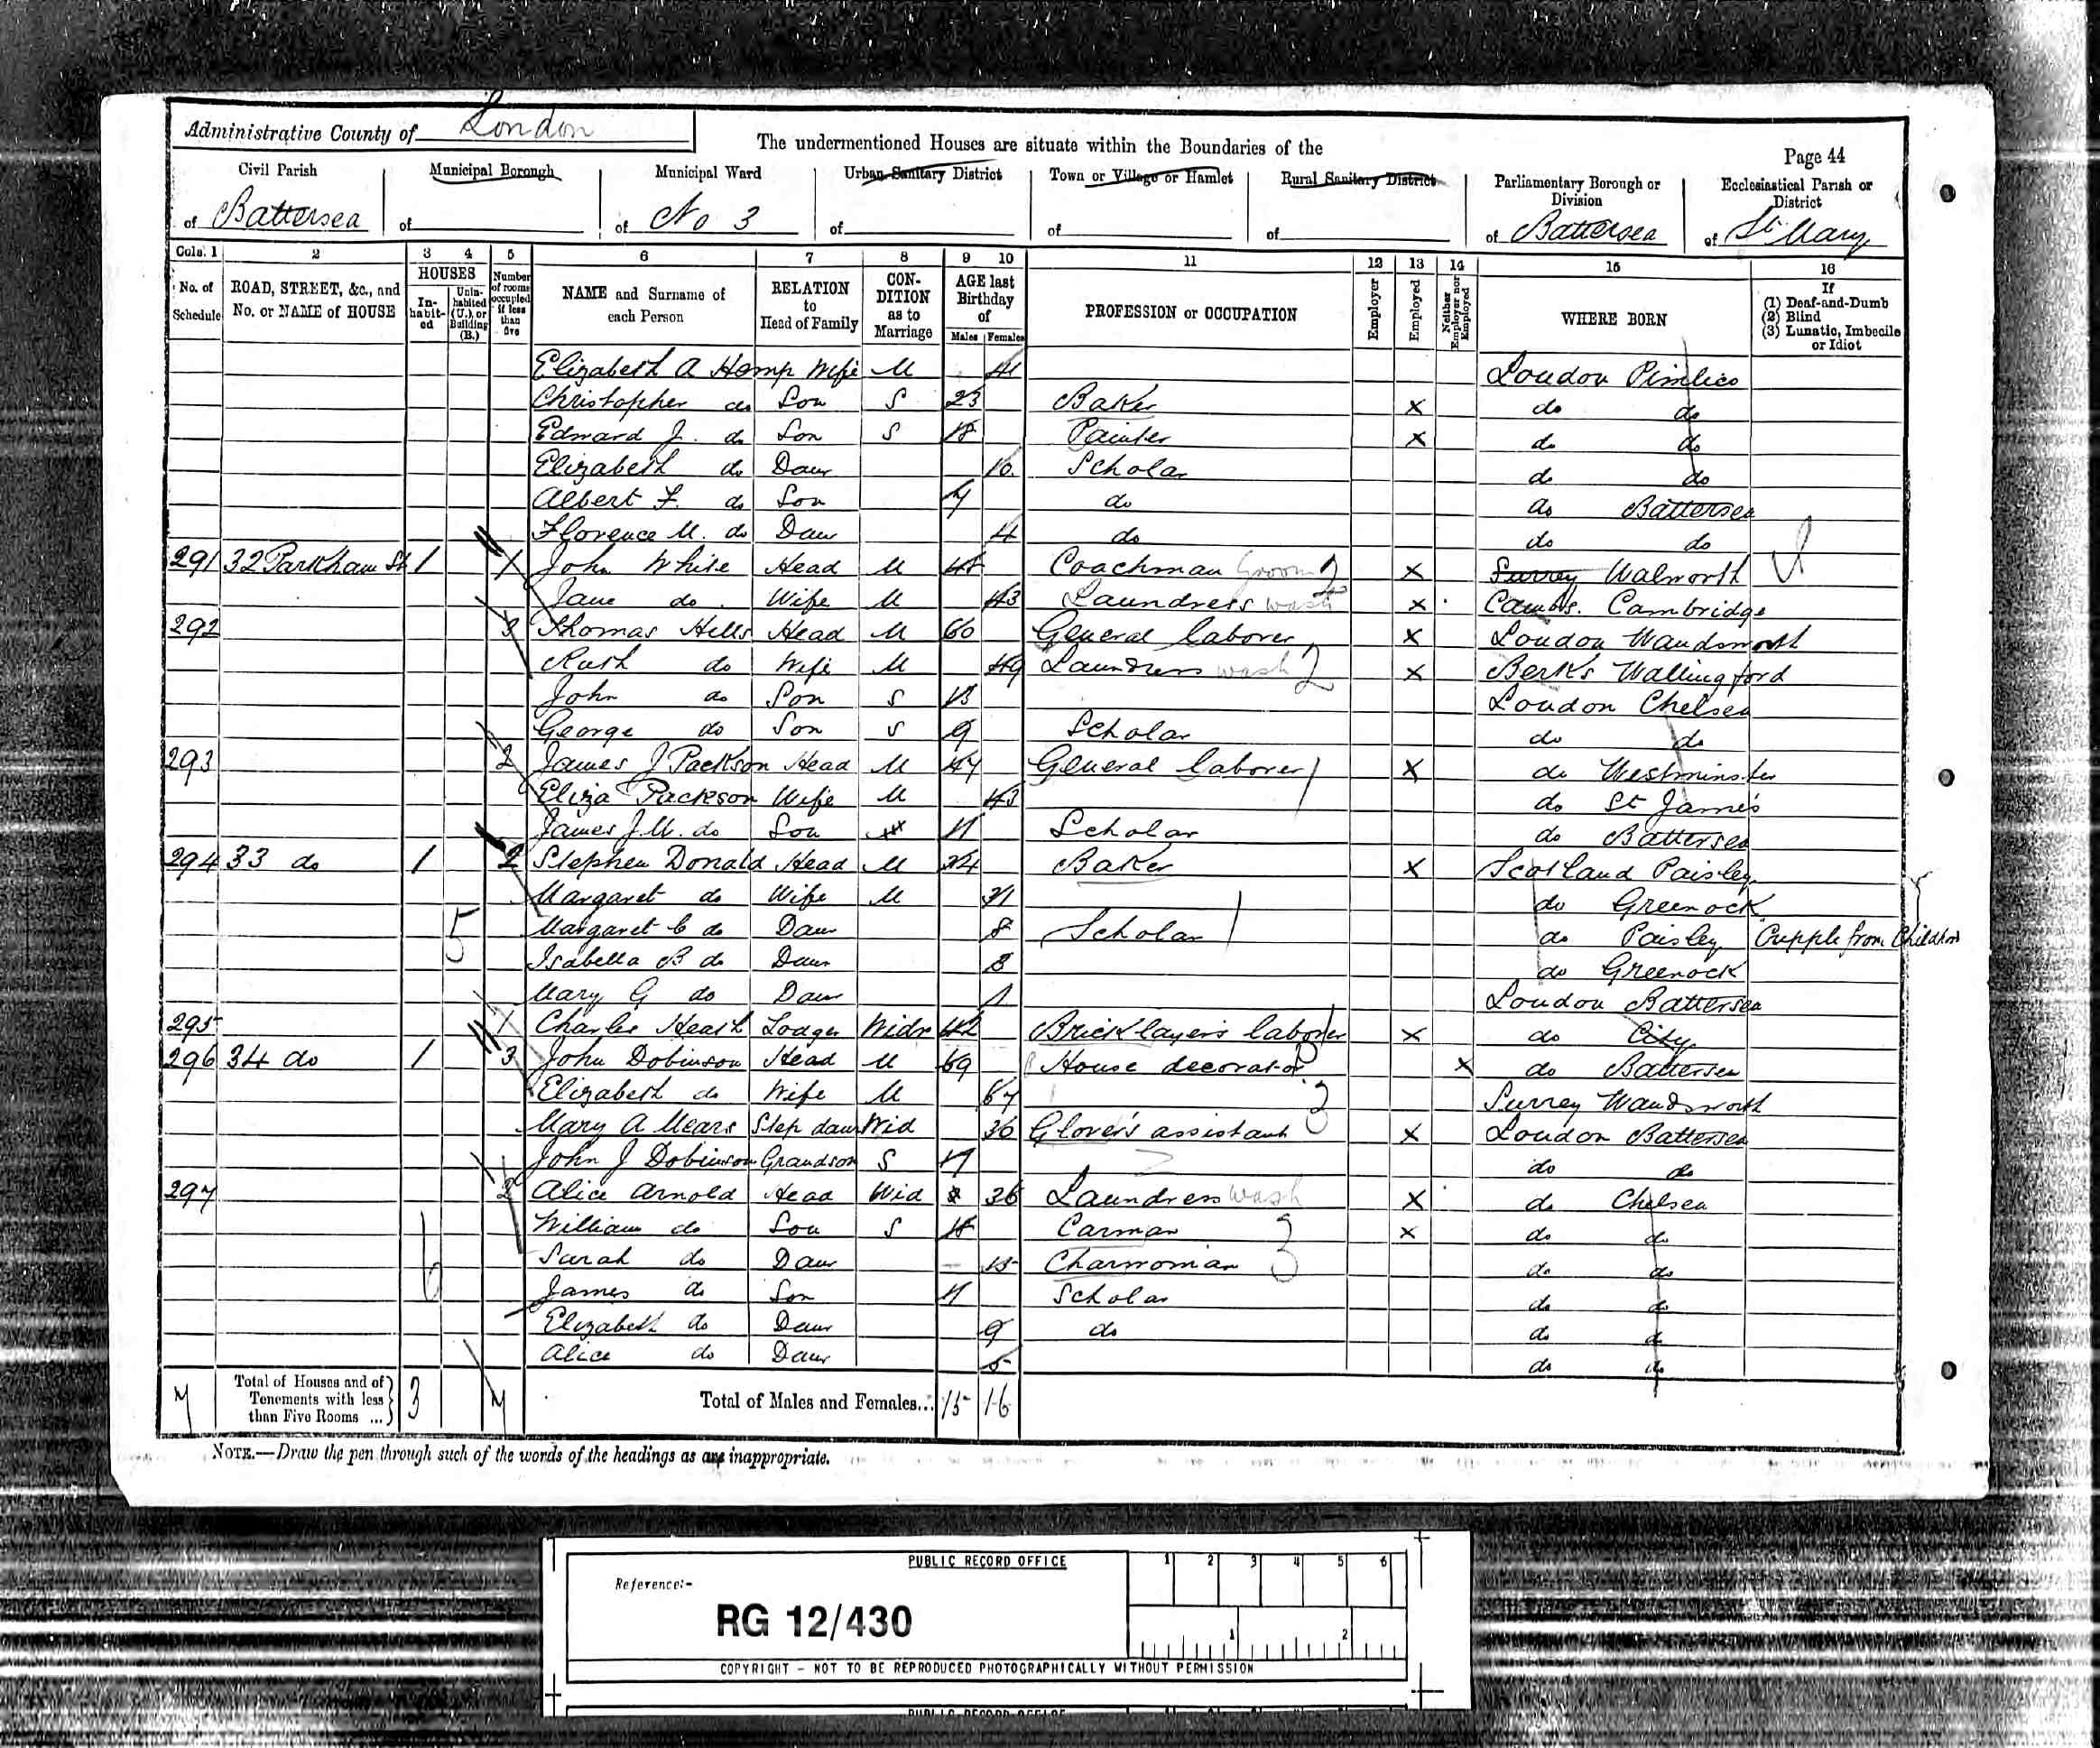 Administrative County of London
The undermentioned Houses are situate within the Boundaries of the
Page 44
Civil Parish of Battersea
Municipal Borough of
Municipal Ward of No 3
Urban Sanitary District of
Town or Village or Hamlet of
Rural Sanitary District of
Parliamentary Borough or Division of Battersea
Ecclesiastical Parish or District of St Mary
Cols. 1 2 3 4 5 6 7 8 9 10 11 12 13 14 15 16
No. of Schedule
ROAD, STREET, &c., and No. or NAME of HOUSE
HOUSES
In-habit-ed
Unin-habited (U.), or Building (B.)
Number of rooms occupied if less than five
NAME and Surname of each Person
RELATION to Head of Family
CON-DITION as to Marriage
AGE last Birthday of
Males Females
PROFESSION or OCCUPATION
Employer
Employed
Neither Employer nor Employed
WHERE BORN
If (1) Deaf-and-Dumb (2) Blind (3) Lunatic, Imbecile or Idiot
Elizabeth A Hemp Wife M 41 London Pimlico
Christopher do Son S 23 Baker X do do
Edward J. do Son S 18 Painter X do do
Elizabeth do Daur 10 Scholar do do
Albert F. do Son 7 do do Battersea
Florence M. do Daur 4 do do do
291 32 Parkham St 1 1 John White Head M 48 Coachman Groom 2 X Surrey Walworth
Jane do Wife M 43 Laundress wash X Cambs. Cambridge
292 3 Thomas Hills Head M 60 General laborer X London Wandsworth
Ruth do Wife M 49 Laundress wash 2 X Berks Wallingford
John do Son S 13 London Chelsea
George do Son S 9 Scholar do do
293 2 James J Packson Head M 47 General laborer X do Westminster
Eliza Packson Wife M 43 do St James
James J.M. do Son 11 Scholar do Battersea
294 33 do 1 2 Stephen Donald Head M 34 Baker X Scotland Paisley
Margaret do Wife M 31 do Greenock
5 Margaret C do Daur 8 Scholar do Paisley Cripple from Childhood
Isabella B do Daur 3 do Greenock
Mary G do Daur 1 London Battersea
295 1 Charles Heath Lodger Widr 42 Bricklayers laborer X do City
296 34 do 1 3 John Dobinson Head M 69 House decorator X do Battersea
Elizabeth do Wife M 67 3 Surrey Wandsworth
Mary A Mears Step daur Wid 36 Glover's assistant X London Battersea
John J Dobinson Grandson S 17 do do
297 2 Alice Arnold Head Wid 36 Laundress wash X do Chelsea
William do Son S 18 Carman X do do
Sarah do Daur 15 Charwoman 3 do do
6 James do Son 11 Scholar do do
Elizabeth do Daur 9 do do do
Alice do Daur 5 do do
7 Total of Houses and of Tenements with less than Five Rooms ... 3 7 Total of Males and Females... 15 16
NOTE.—Draw the pen through such of the words of the headings as are inappropriate.
PUBLIC RECORD OFFICE
1 2 3 4 5 6
Reference:-
RG 12/430
1 2
COPYRIGHT - NOT TO BE REPRODUCED PHOTOGRAPHICALLY WITHOUT PERMISSION
PUBLIC RECORD OFFICE